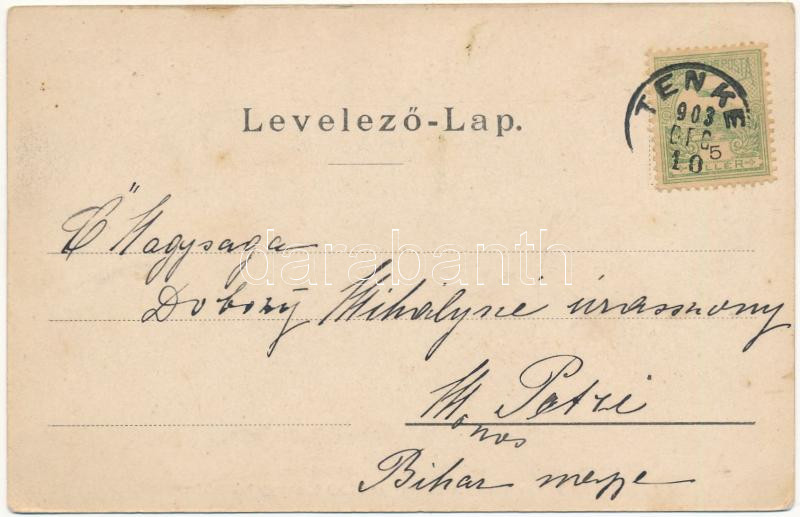 Levelező-Lap.
TENKE
903
DEC
10
POSTA
5
FILLÉR
Ő Nagysága
darabanth
Dobozy Mihályné úrasszony
M Petri
onos
Bihar megye